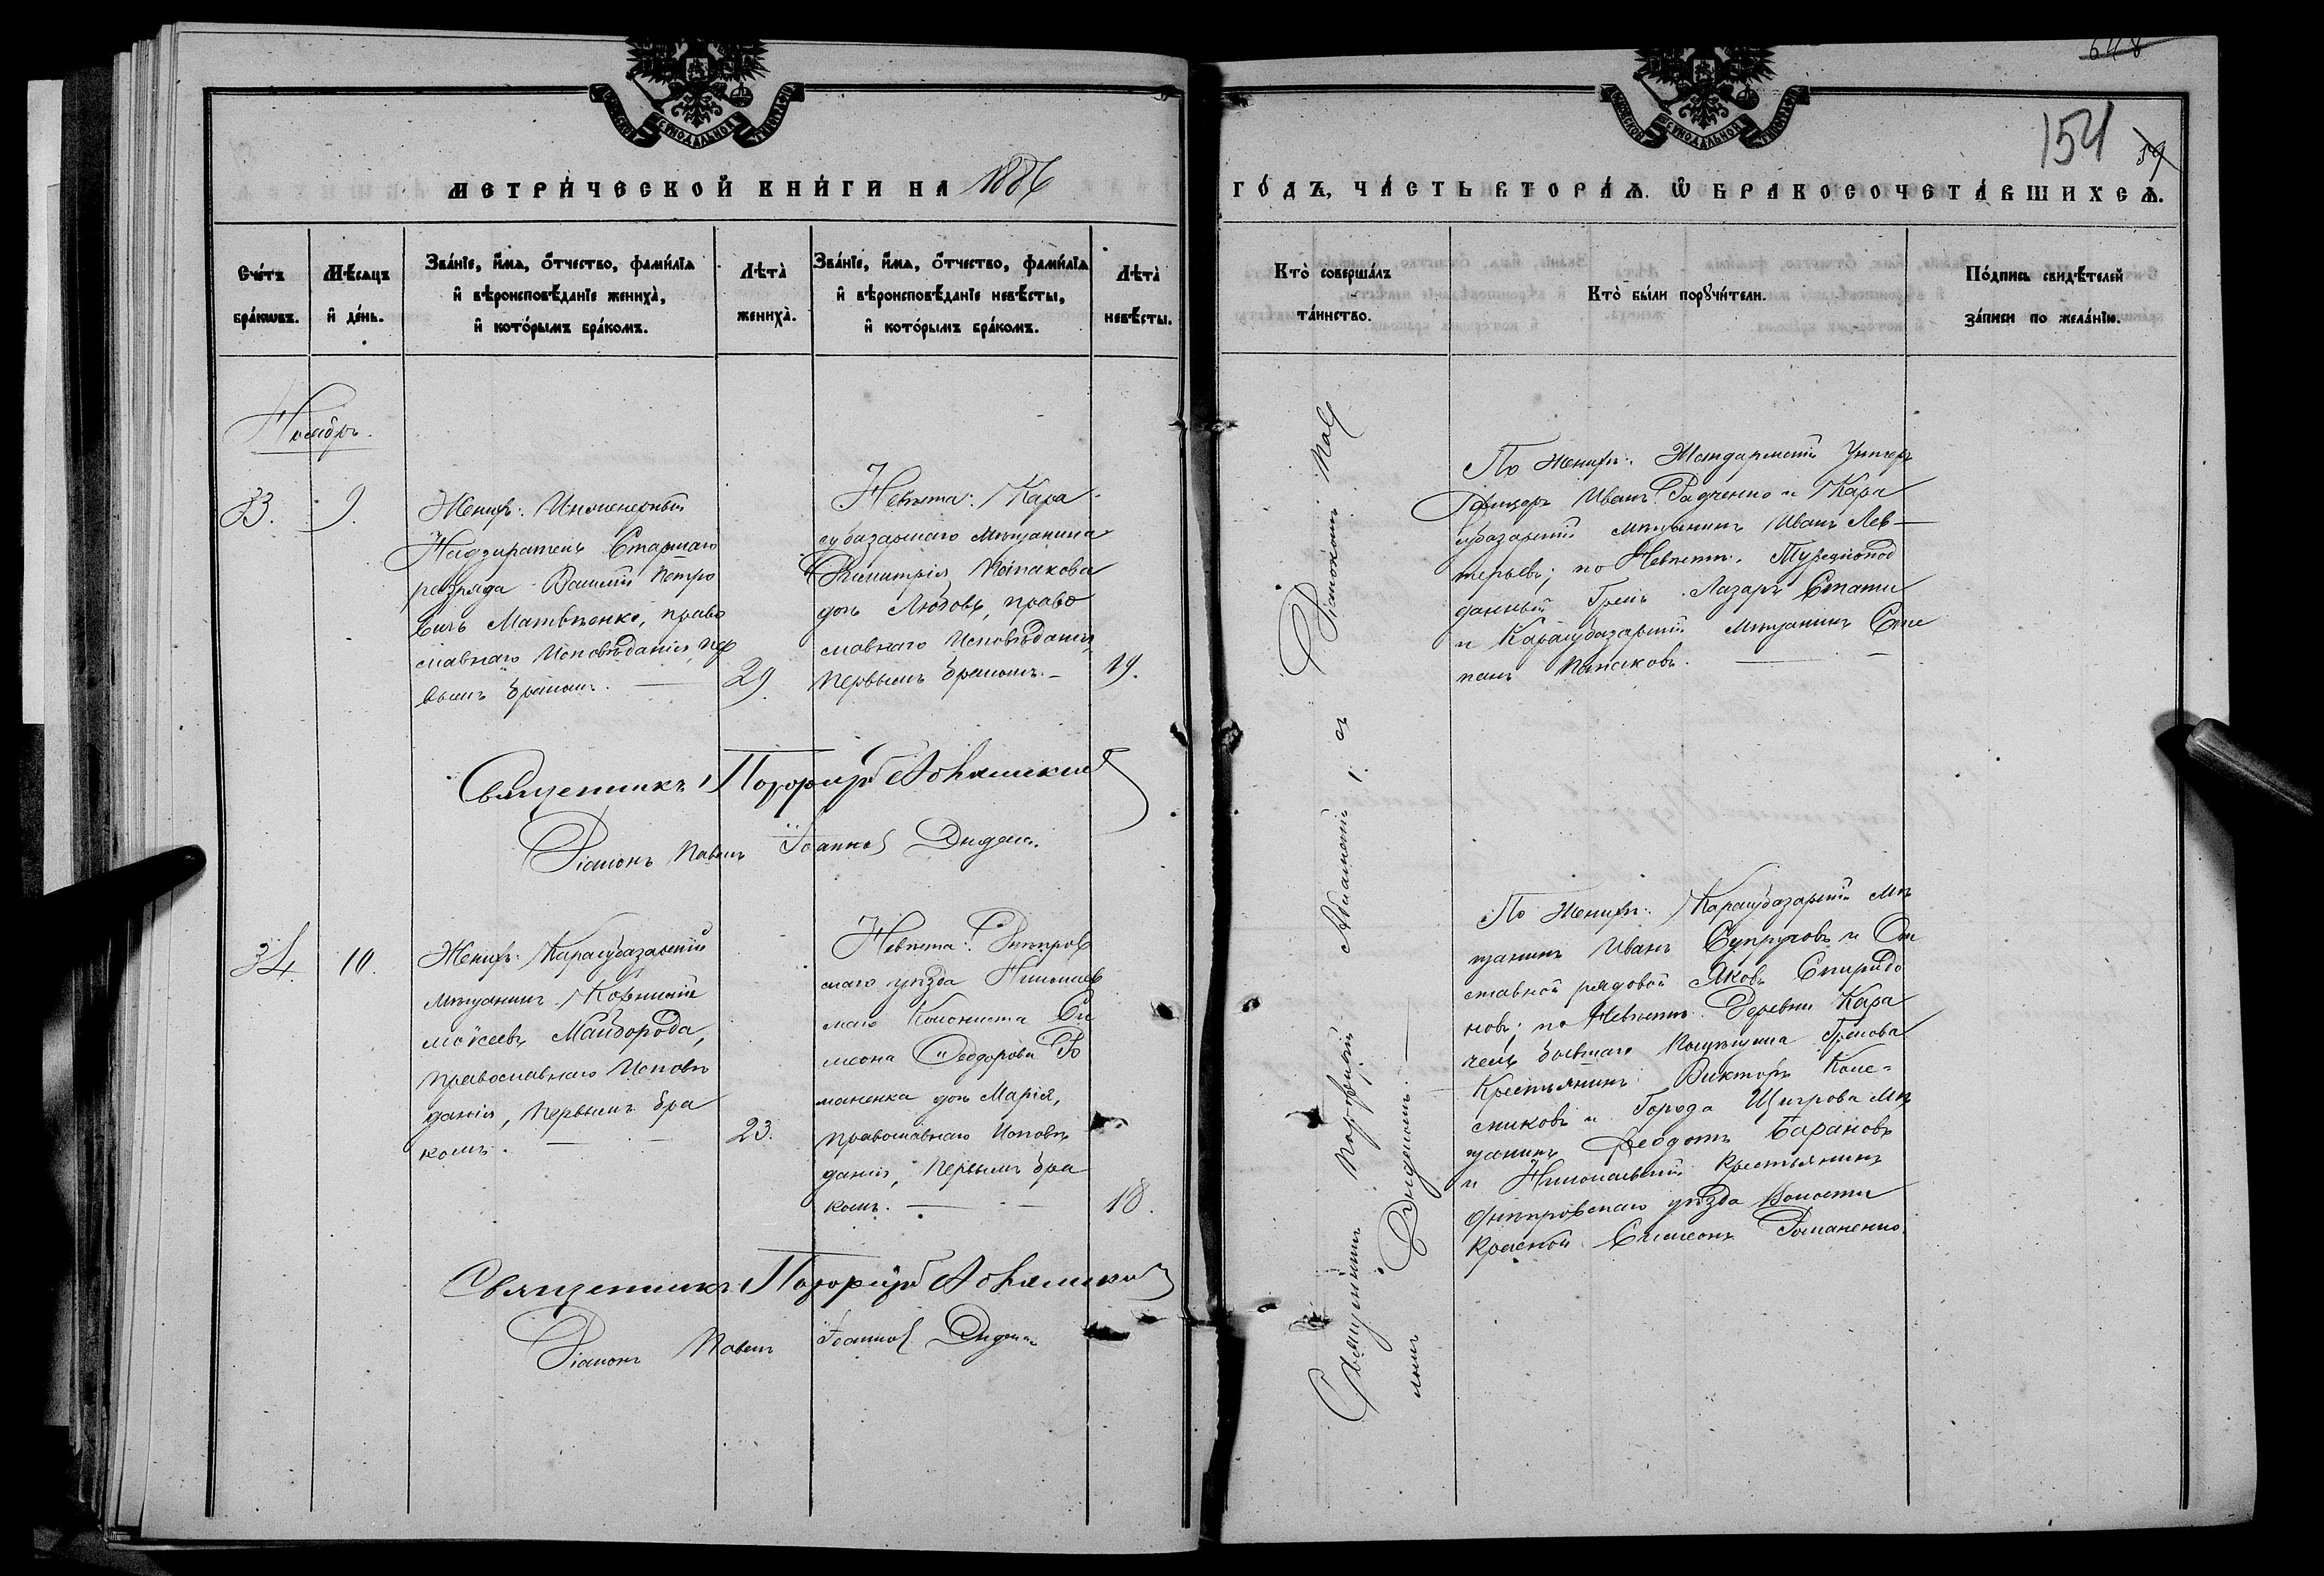 648
154
59
МЕТРИ́ЧЕСКОЙ КНИ́ГИ НА 1886
ГО́ДЪ, ЧА́СТЬ ВТОРА́Ѧ. Ѿ БРАКОСОЧЕТА́ВШИХСѦ.
Сче́тъ бра́кѡвъ.
Мѣ́сѧцъ и҆ де́нь.
Зва́нїе, и҆́мѧ, ѻ҆́тчество, фами́лїѧ
и҆ вѣроисповѣ́данїе жениха̀,
и҆ кото́рымъ бра́комъ.
Лѣта̀ жениха̀.
Зва́нїе, и҆́мѧ, ѻ҆́тчество, фами́лїѧ
и҆ вѣроисповѣ́данїе невѣ́сты,
и҆ кото́рымъ бра́комъ.
Лѣта̀ невѣ́сты.
Кто̀ соверша́лъ
та́инство.
Кто̀ бы́ли порꙋчи́тели.
По́дпись свидѣ́телей
за́писи по жела́нїю.
Ноябрь.
33.
9.
Женихъ: Инженерный
Надзиратель Старшаго
разряда Василій Петро
вичъ Матвѣенко, право
славнаго Исповѣданія, пер
вымъ бракомъ.
29.
Невѣста: Кара
субазарскаго мѣщанина
Димитрія
дочь Любовь, право
славнаго Исповѣданія,
первымъ бракомъ.
19.
По Женихѣ: Жандармскій Унтеръ
Офицеръ Иванъ Радченко и Кара
субазарскій мѣщанинъ Иванъ Лев-
терьевъ; по Невѣстѣ: Турецкопод
данный Грекъ Лазарь Стати
и Карасубазарскій Мѣщанинъ Сте
панъ
Священникъ Порфирій
Діаконъ Павелъ Диденко
34.
10.
Женихъ: Карасубазарскій
мѣщанинъ Корнилій
Моисеевъ Майборода,
православнаго Исповѣ
данія, первымъ бра
комъ.
23.
Невѣста: Днѣпров
скаго уѣзда Николаев
скаго Колониста Си
меона Ѳеодорова Ро
маненка дочь Марія,
православнаго Исповѣ
данія, первымъ бра
комъ.
18.
По Женихѣ: Карасубазарскій мѣ
щанинъ Иванъ Супруновъ и От
ставной рядовой Яковъ Спиридо
новъ; по Невѣстѣ: Деревни Кара
чель бывшаго Помѣщика Грекова
Крестьянинъ Викторъ Коле-
сниковъ и Города Щигрова Мѣ
щанинъ Ѳеодотъ Барановъ
и Николаевскій Крестьянинъ
Днѣпровскаго уѣзда Волости
Красной Симеонъ Романенко.
Священникъ Порфирій
Діаконъ Павелъ Диденко
Священникъ Порфирій съ Діакономъ Пав
ломъ Диденкомъ.